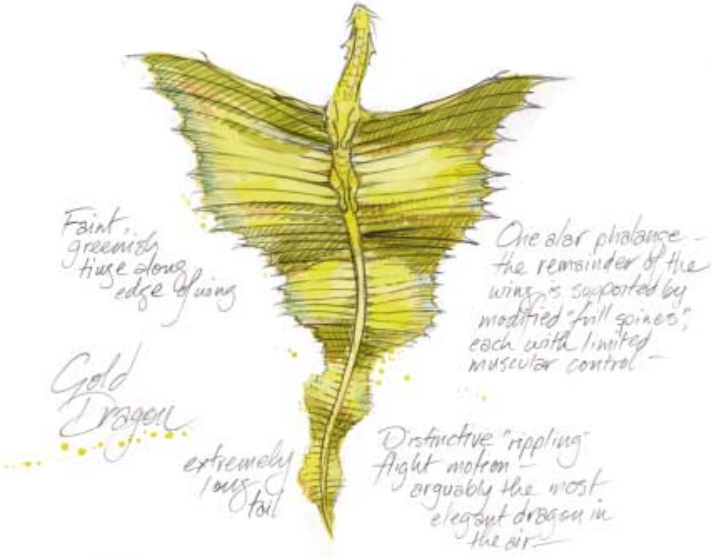 Faint,
greenish
tinge along
edge of wing
One alar phalange -
the remainder of the
wing is supported by
modified "frill spines",
each with limited
muscular control -
Gold
Dragon
extremely
long
tail
Distinctive "rippling"
flight motion -
arguably the most
elegant dragon in
the air -